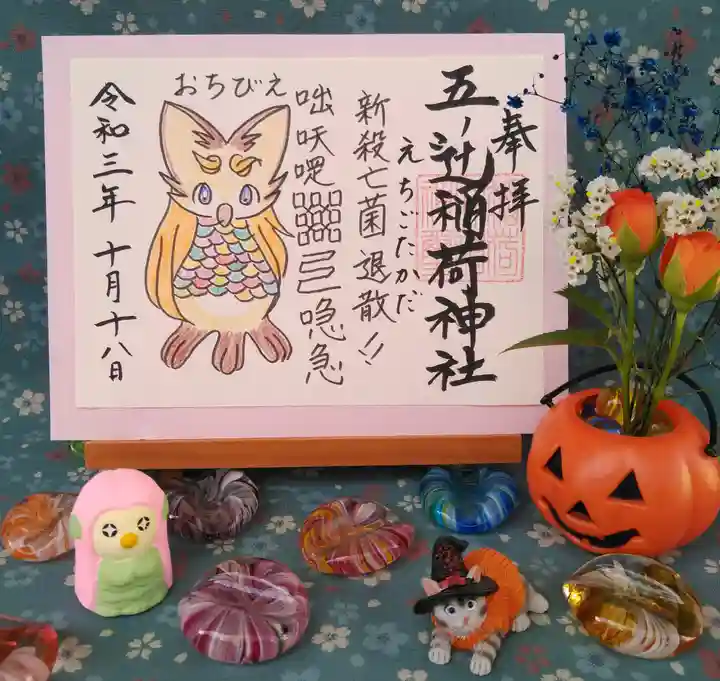 奉拝
五ノ辻稲荷神社
えちごたかだ
新殺亡菌退散!!
咄吠喼
急急
おちびえ
令和三年十月十八日